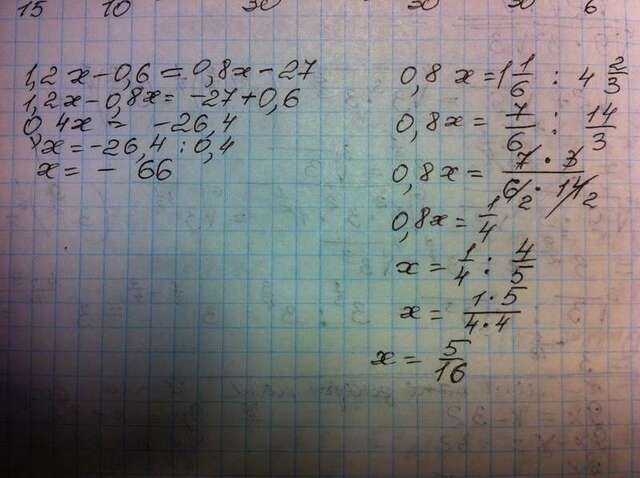 15 10 30 30 30 6
1,2x-0,6=0,8x-27
1,2x-0,8x=-27+0,6
0,4x= -26,4
x=-26,4:0,4
x= - 66
0,8x=1 1/6 : 4 2/3
0,8x= 7/6 : 14/3
0,8x= 7·3/6 2·14 2
0,8x= 1/4
x= 1/4 : 4/5
x= 1·5/4·4
x= 5/16